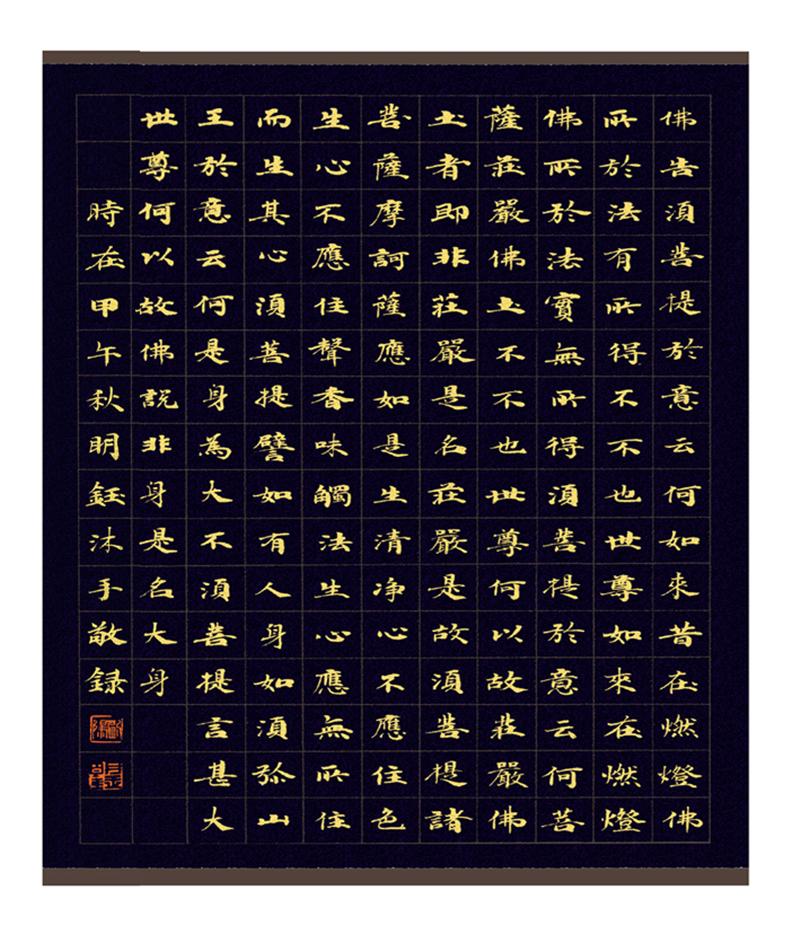 佛告須菩提於意云何如來昔在燃燈佛
所於法有所得不不也世尊如來在燃燈
佛所於法實無所得須菩提於意云何菩
薩莊嚴佛土不不也世尊何以故莊嚴佛
土者即非莊嚴是名莊嚴是故須菩提諸
菩薩摩訶薩應如是生清净心不應住色
生心不應住聲香味觸法生心應無所住
而生其心須菩提譬如有人身如須弥山
王於意云何是身為大不須菩提言甚大
世尊何以故佛說非身是名大身
時在甲午秋明鈺沐手敬録